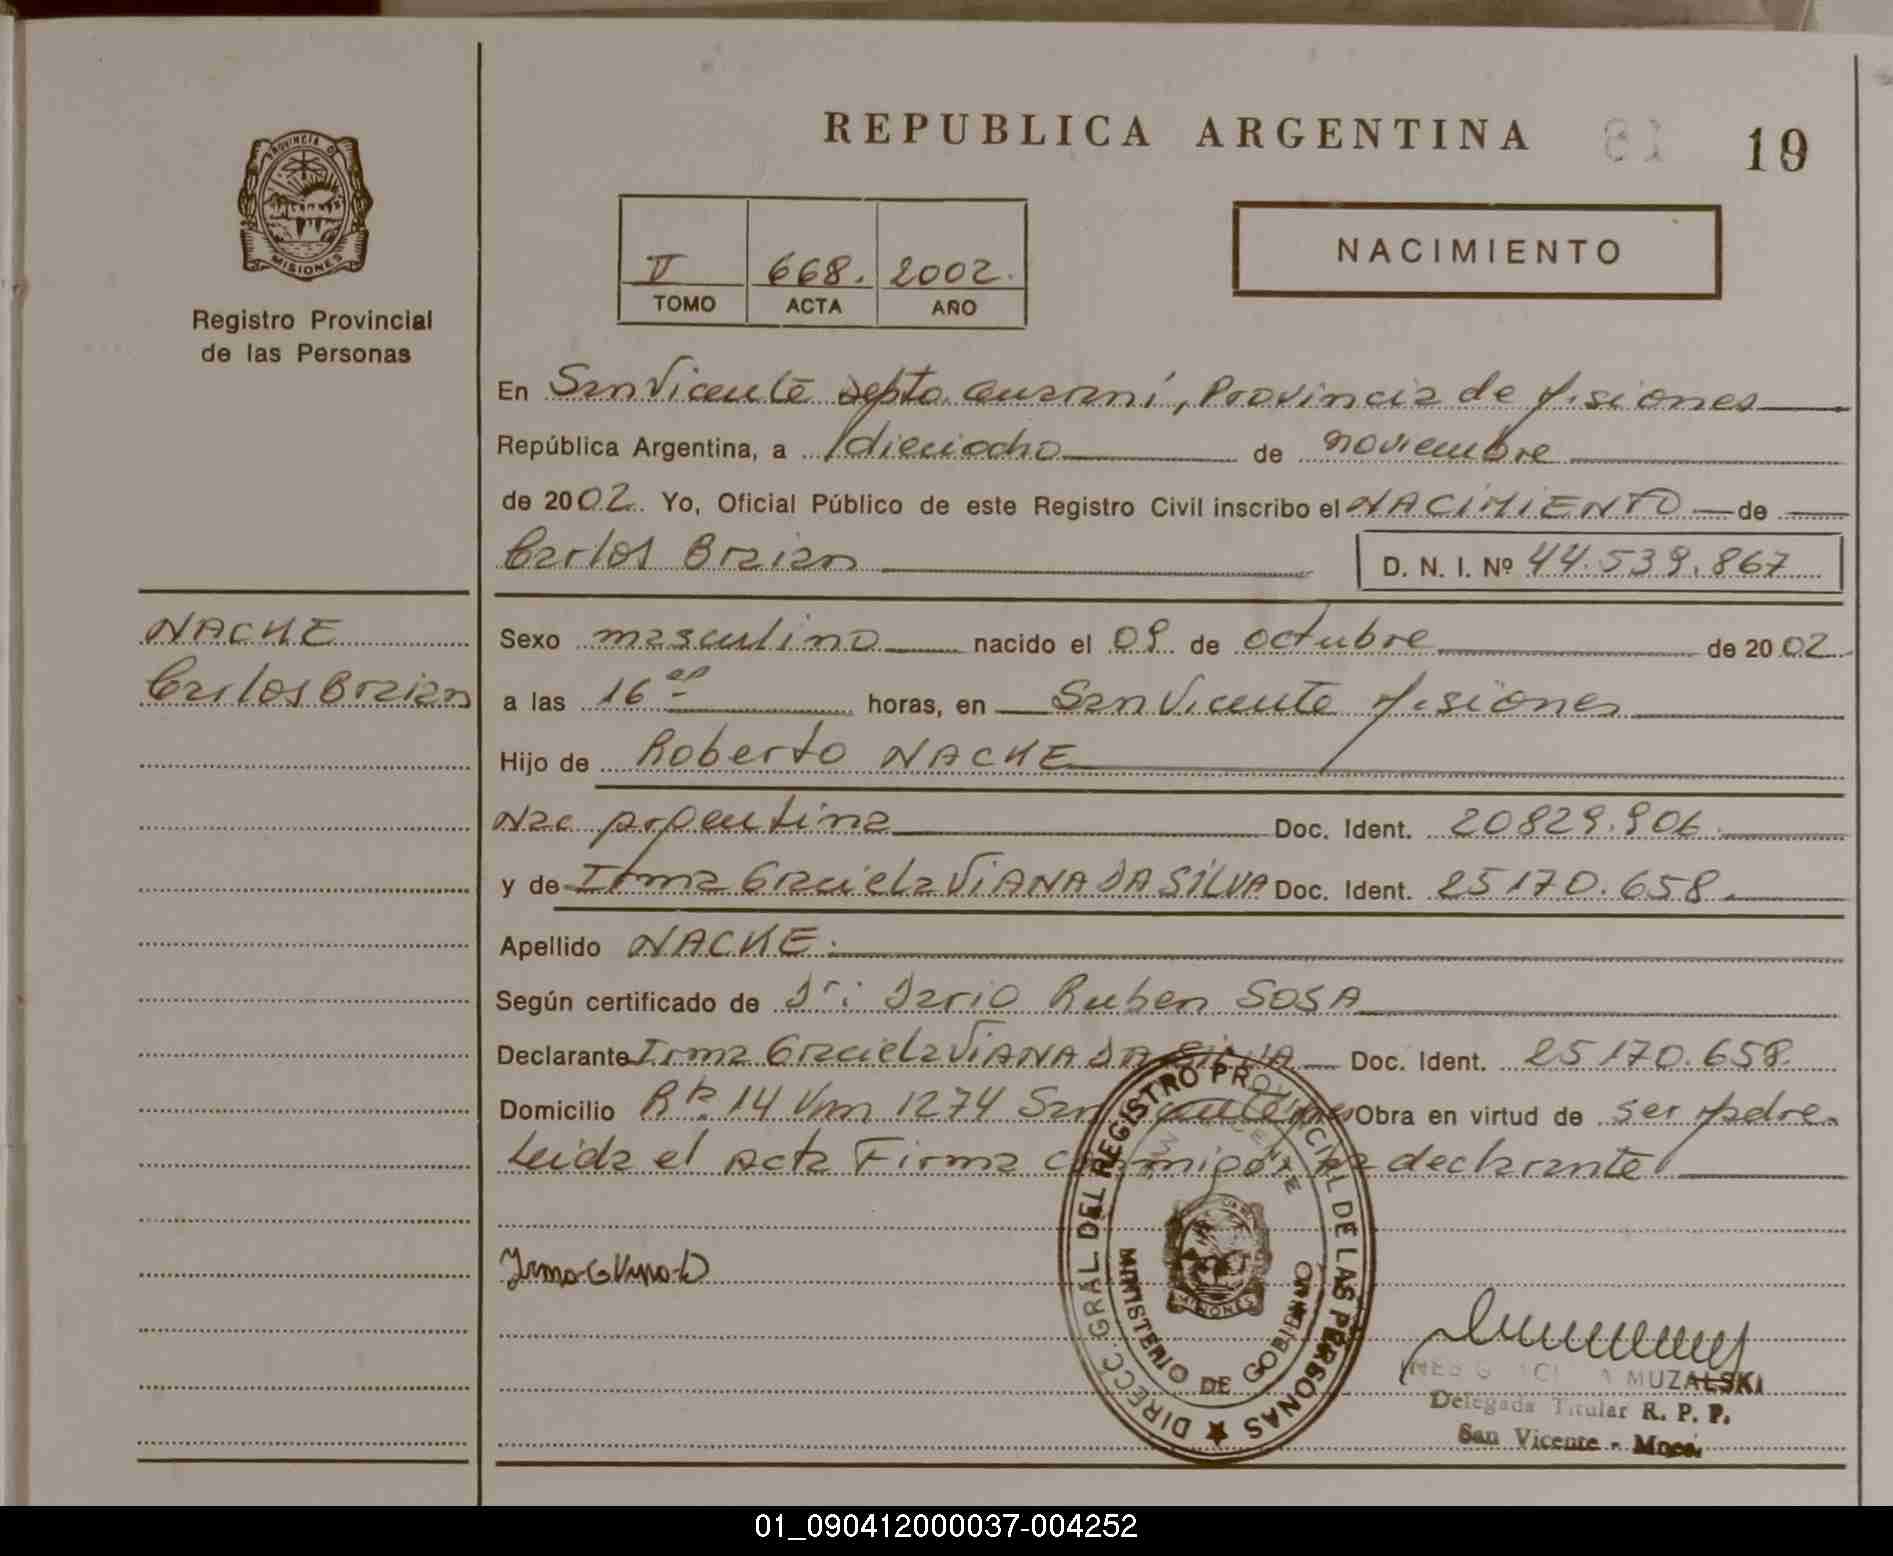 REPUBLICA ARGENTINA 19
PROVINCIA DE
MISIONES
Registro Provincial
de las Personas
V 668. 2002.
TOMO ACTA AÑO
NACIMIENTO
En San Vicente Depto. Guaraní, Provincia de Misiones
República Argentina, a dieciocho de noviembre
de 2002. Yo, Oficial Público de este Registro Civil inscribo el NACIMIENTO de
Carlos Braian D. N. I. Nº 44.539.867
NACKE
Carlos Braian
Sexo masculino nacido el 09 de octubre de 2002
a las 16 horas, en San Vicente Misiones
Hijo de Roberto NACKE
Nac argentina Doc. Ident. 20829.906
y de Irma Graciela VIANA DA SILVA Doc. Ident. 25170.658.
Apellido NACKE.
Según certificado de Dr: Dario Ruben SOSA
Declarante Irma Graciela VIANA DA SILVA Doc. Ident. 25170.658.
Domicilio 14 Km 1274 San Vicente Obra en virtud de ser Madre.
Leida el acta Firma conmigo la declarante
DIRECC. GRAL. DEL REGISTRO PROVINCIAL DE LAS PERSONAS
SAN VICENTE
MINISTERIO DE GOBIERNO
MISIONES
MUZALSKI
Delegada Titular R. P. P.
San Vicente - Mnes.
01_090412000037-004252